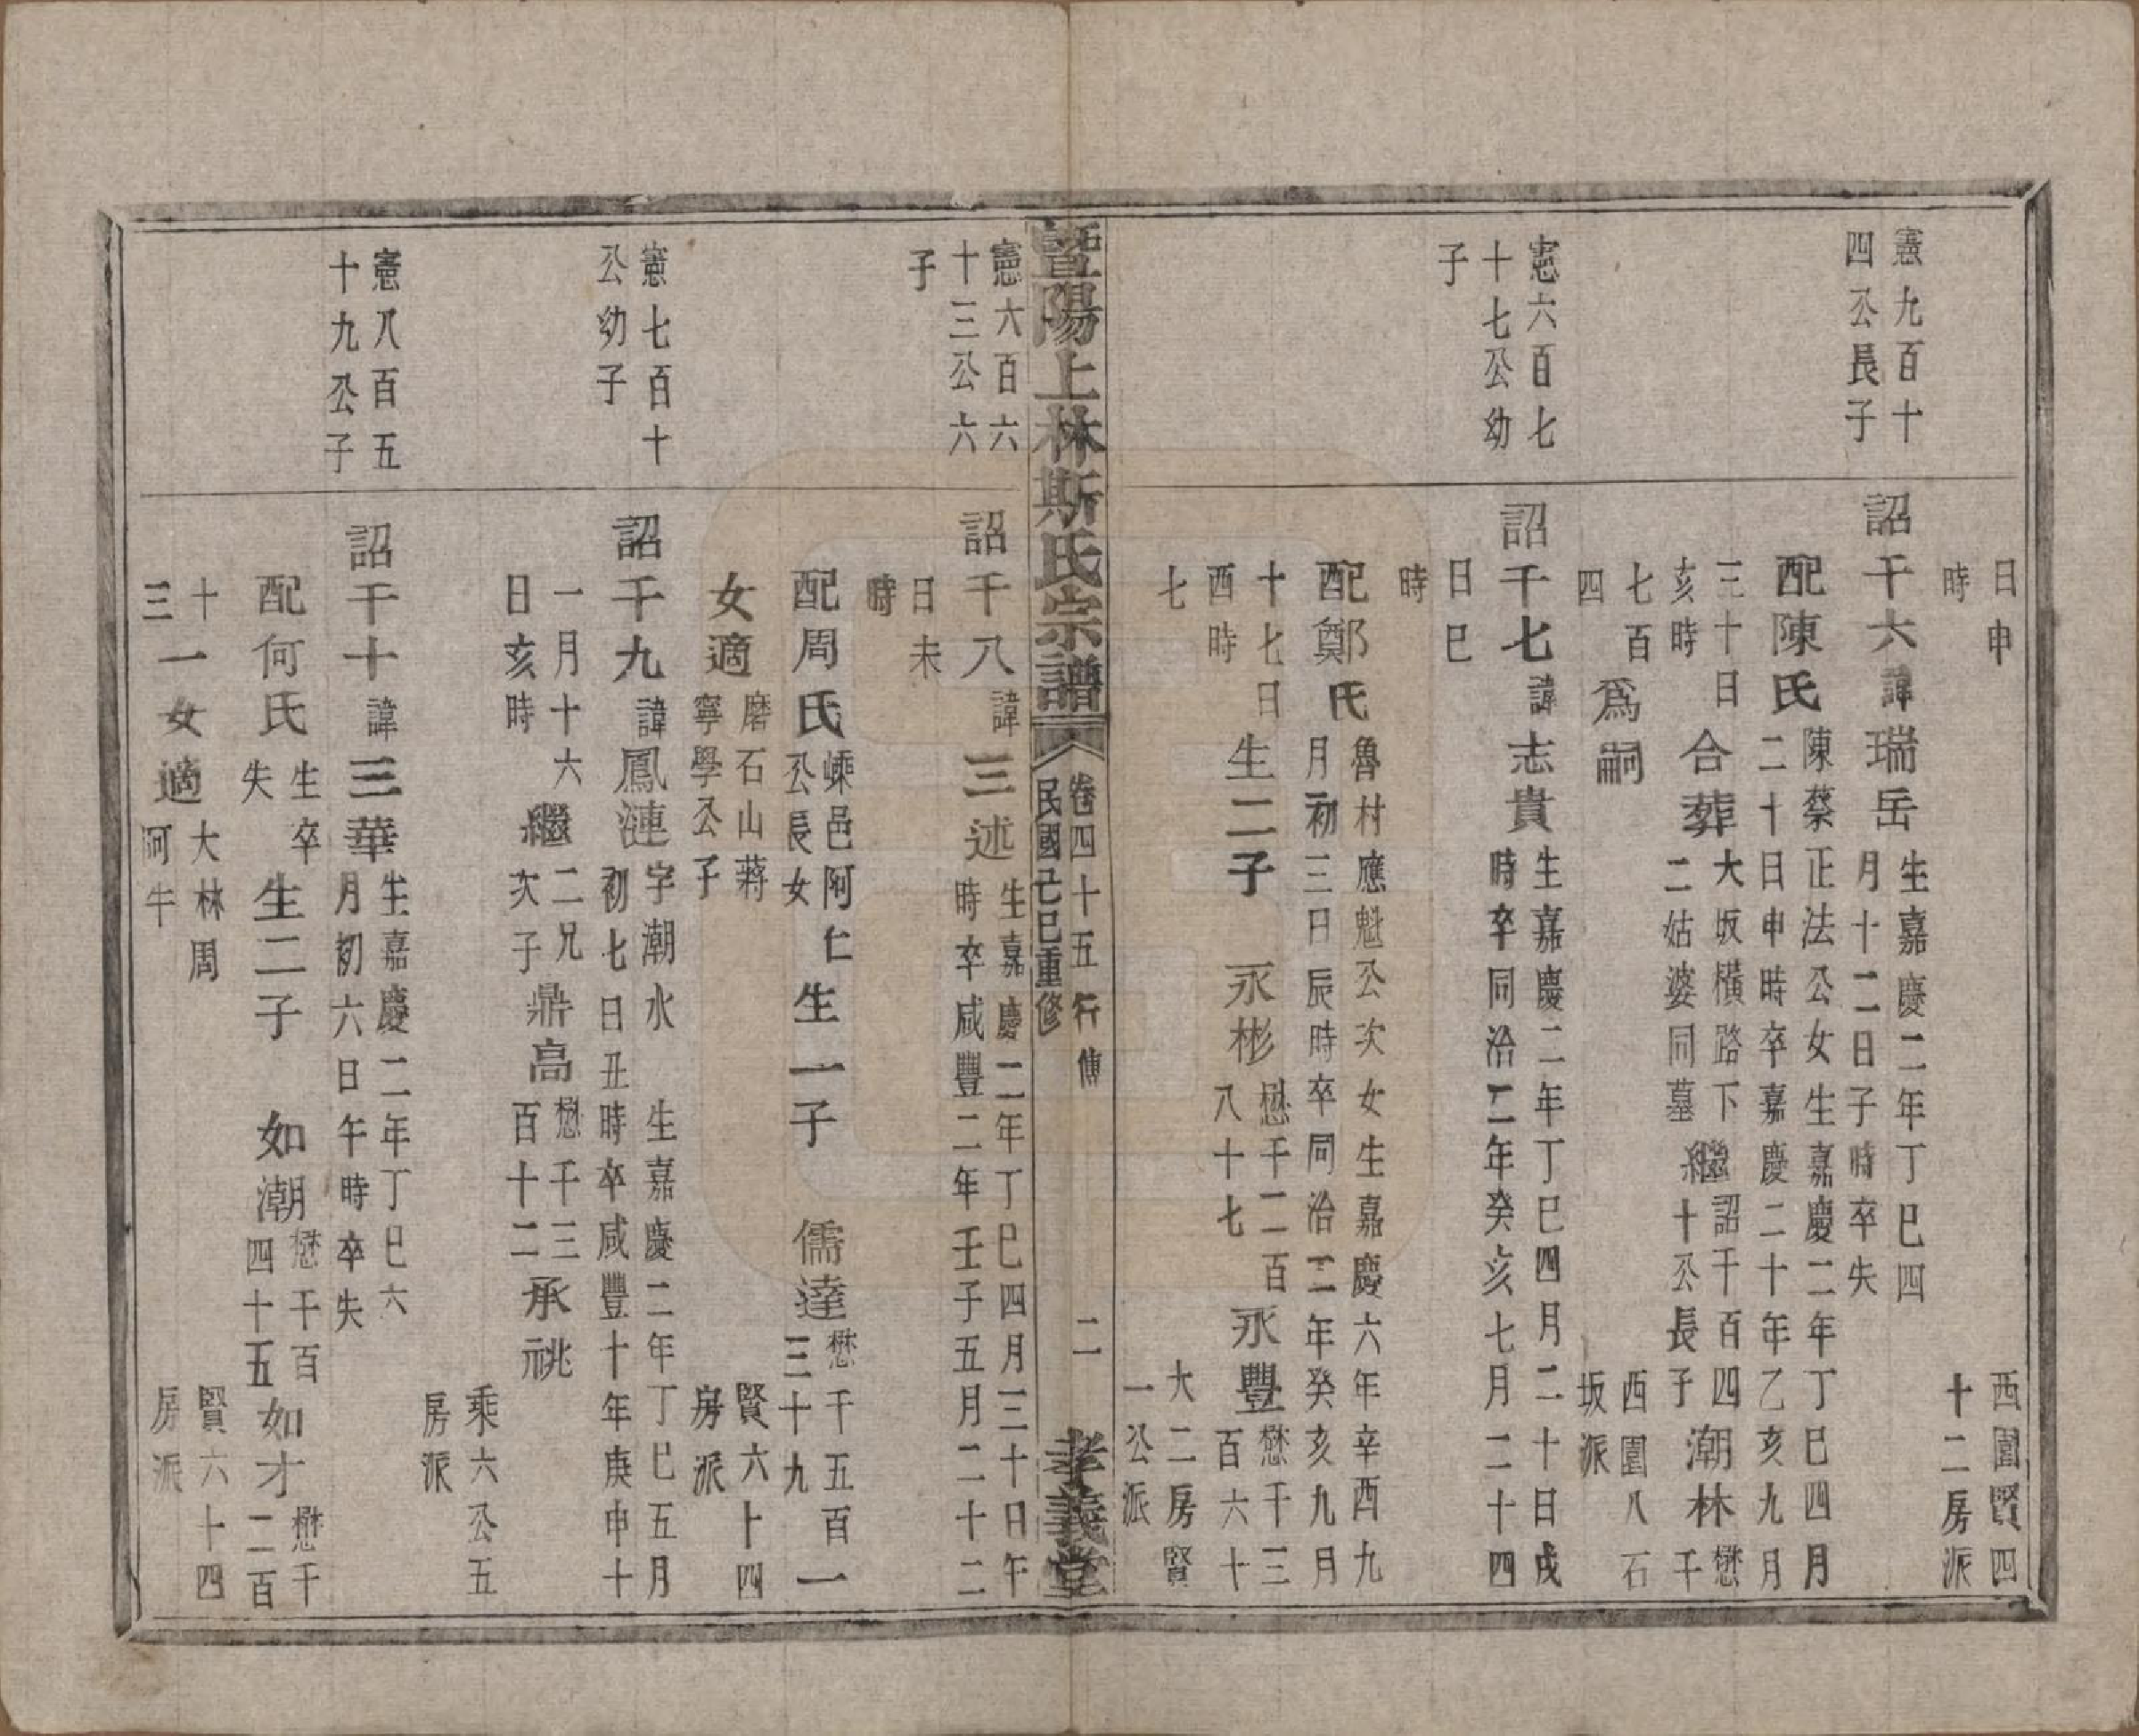 日申
時
西園賢四
十二房派
憲九百十
四公長子
詔千六諱瑞岳生嘉慶二年丁巳四
月十二日子時卒失
配陳氏陳蔡正法公女生嘉慶二年丁巳四月
二十日申時卒嘉慶二十年乙亥九月
三十日
亥時
合葬大坂橫路下
二姑婆同墓
繼詔千百四
十公長子
潮林懋千
七百
四
爲嗣
西園八石
坂派
憲六百七
十七公幼
子
詔千七諱志貴生嘉慶二年丁巳四月二十日戌
時卒同治二年癸亥七月二十四
日巳
時
配鄭氏魯村應魁公次女生嘉慶六年辛酉九
月初三日辰時卒同治二年癸亥九月
十七日
酉時
生二子
永彬懋千二百
八十七
永豐懋千三
百六十
七
大二房賢
一公派
暨陽上林斯氏宗譜
卷四十五行傳
民國己巳重修
二
孝義堂
憲六百六
十三公六
子
詔千八諱三述生嘉慶二年丁巳四月三十日午
時卒咸豐二年壬子五月二十二
日未
時
配周氏嵊邑阿仁
公長女
生一子
儒達懋千五百一
三十九
女適磨石山蔣
寧學公子
賢六十四
房派
憲七百十
公幼子
詔千九諱鳳漣字潮水
生嘉慶二年丁巳五月
初七日丑時卒咸豐十年庚申十
一月十六
日亥時
繼二兄
次子
鼎高懋千三
百十二
承祧
乘六公五
房派
憲八百五
十九公子
詔千十諱三華生嘉慶二年丁巳六
月初六日午時卒失
配何氏生卒
失
生二子
如潮懋千百
四十五
如才懋千
二百
十
三
一女適大林周
阿牛
賢六十四
房派